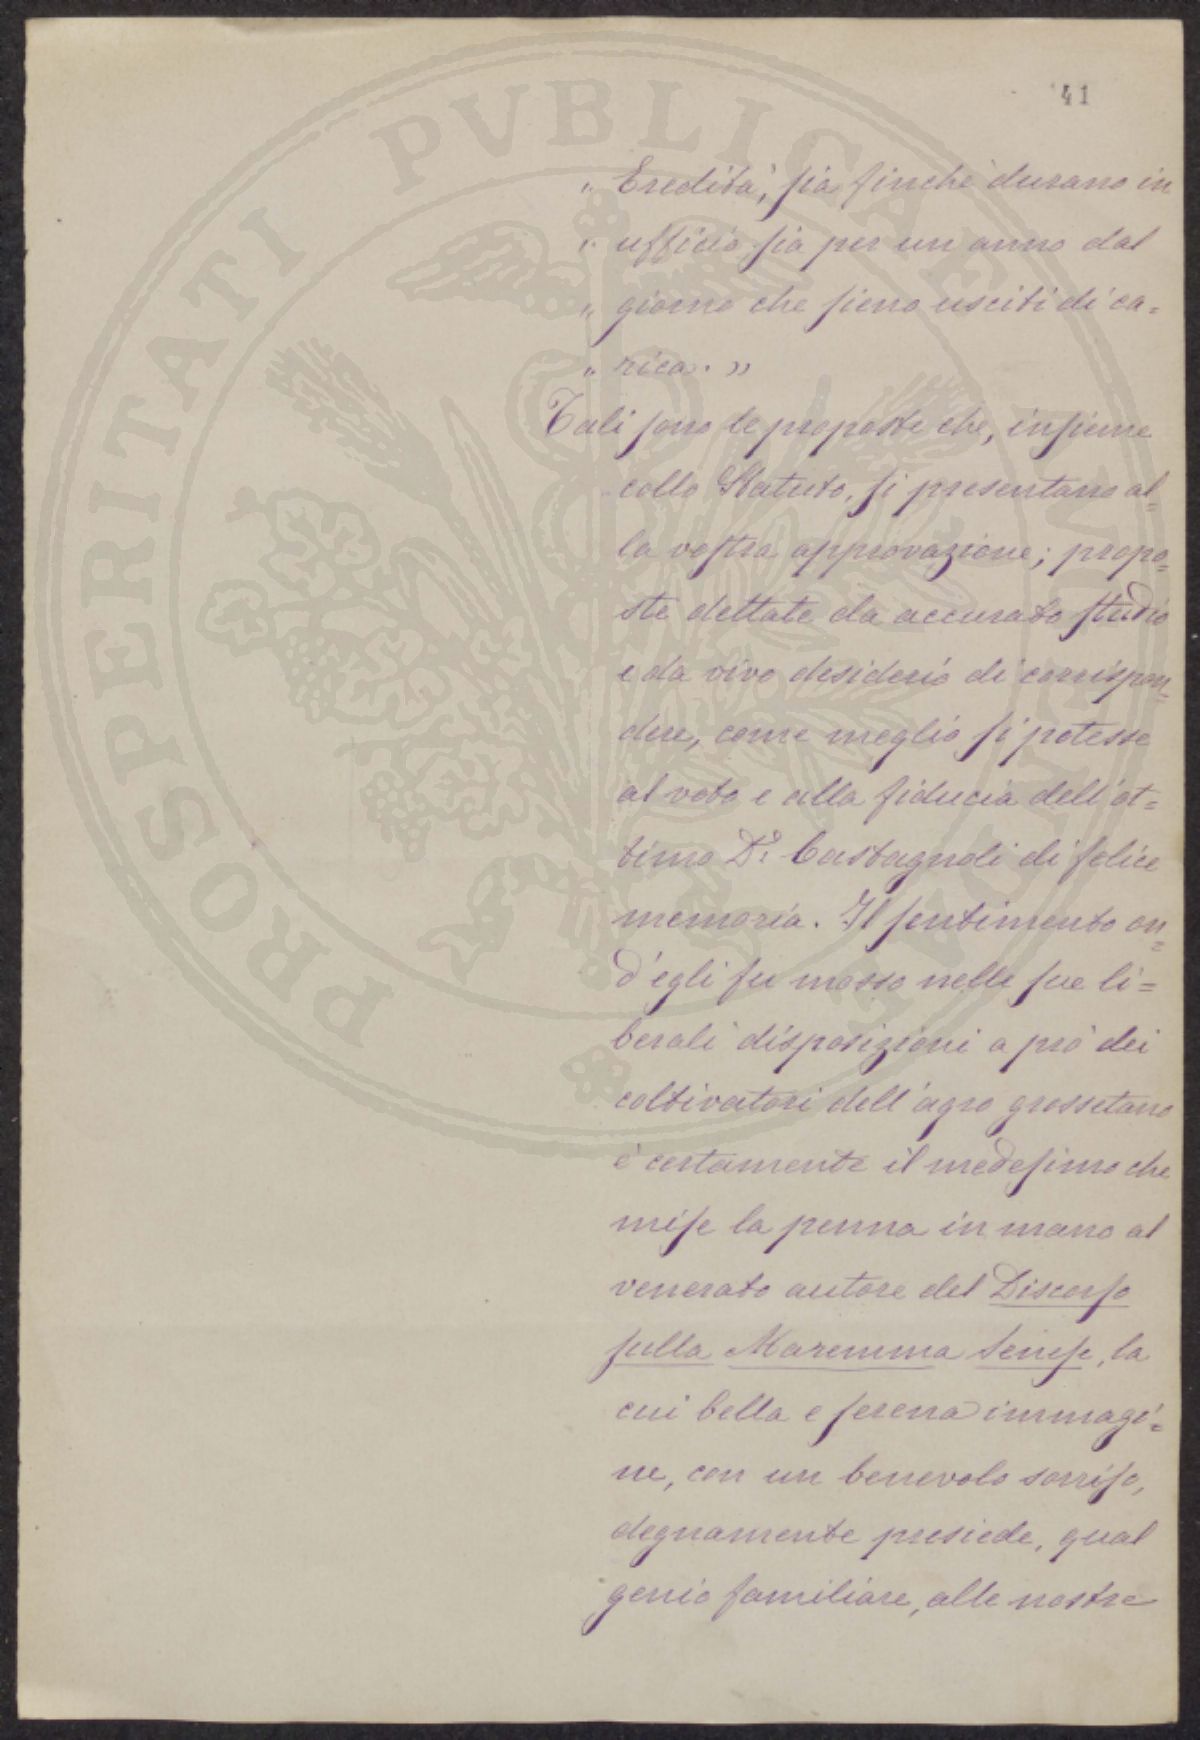 41
„ Eredità, sia finchè durano in
„ ufficio sia per un anno dal
„ giorno che sieno usciti di ca=
„ rica. »
Tali sono le proposte che, insieme
collo Statuto, si presentano al=
la vostra approvazione; propo=
ste dettate da accurato studio
e da vivo desiderio di corrispon=
dere, come meglio si potesse
al voto e alla fiducia dell'ot=
timo Dr. Castagnoli di felice
memoria. Il sentimento on=
d'egli fu mosso nelle sue li=
berali disposizioni a prò dei
coltivatori dell'agro grossetano
è certamente il medesimo che
mise la penna in mano al
venerato autore del Discorso
sulla Maremma Senese, la
cui bella e serena immagi=
ne, con un benevolo sorriso,
degnamente presiede, qual
genio familiare, alle nostre
PROSPERITATI PVBLICAE